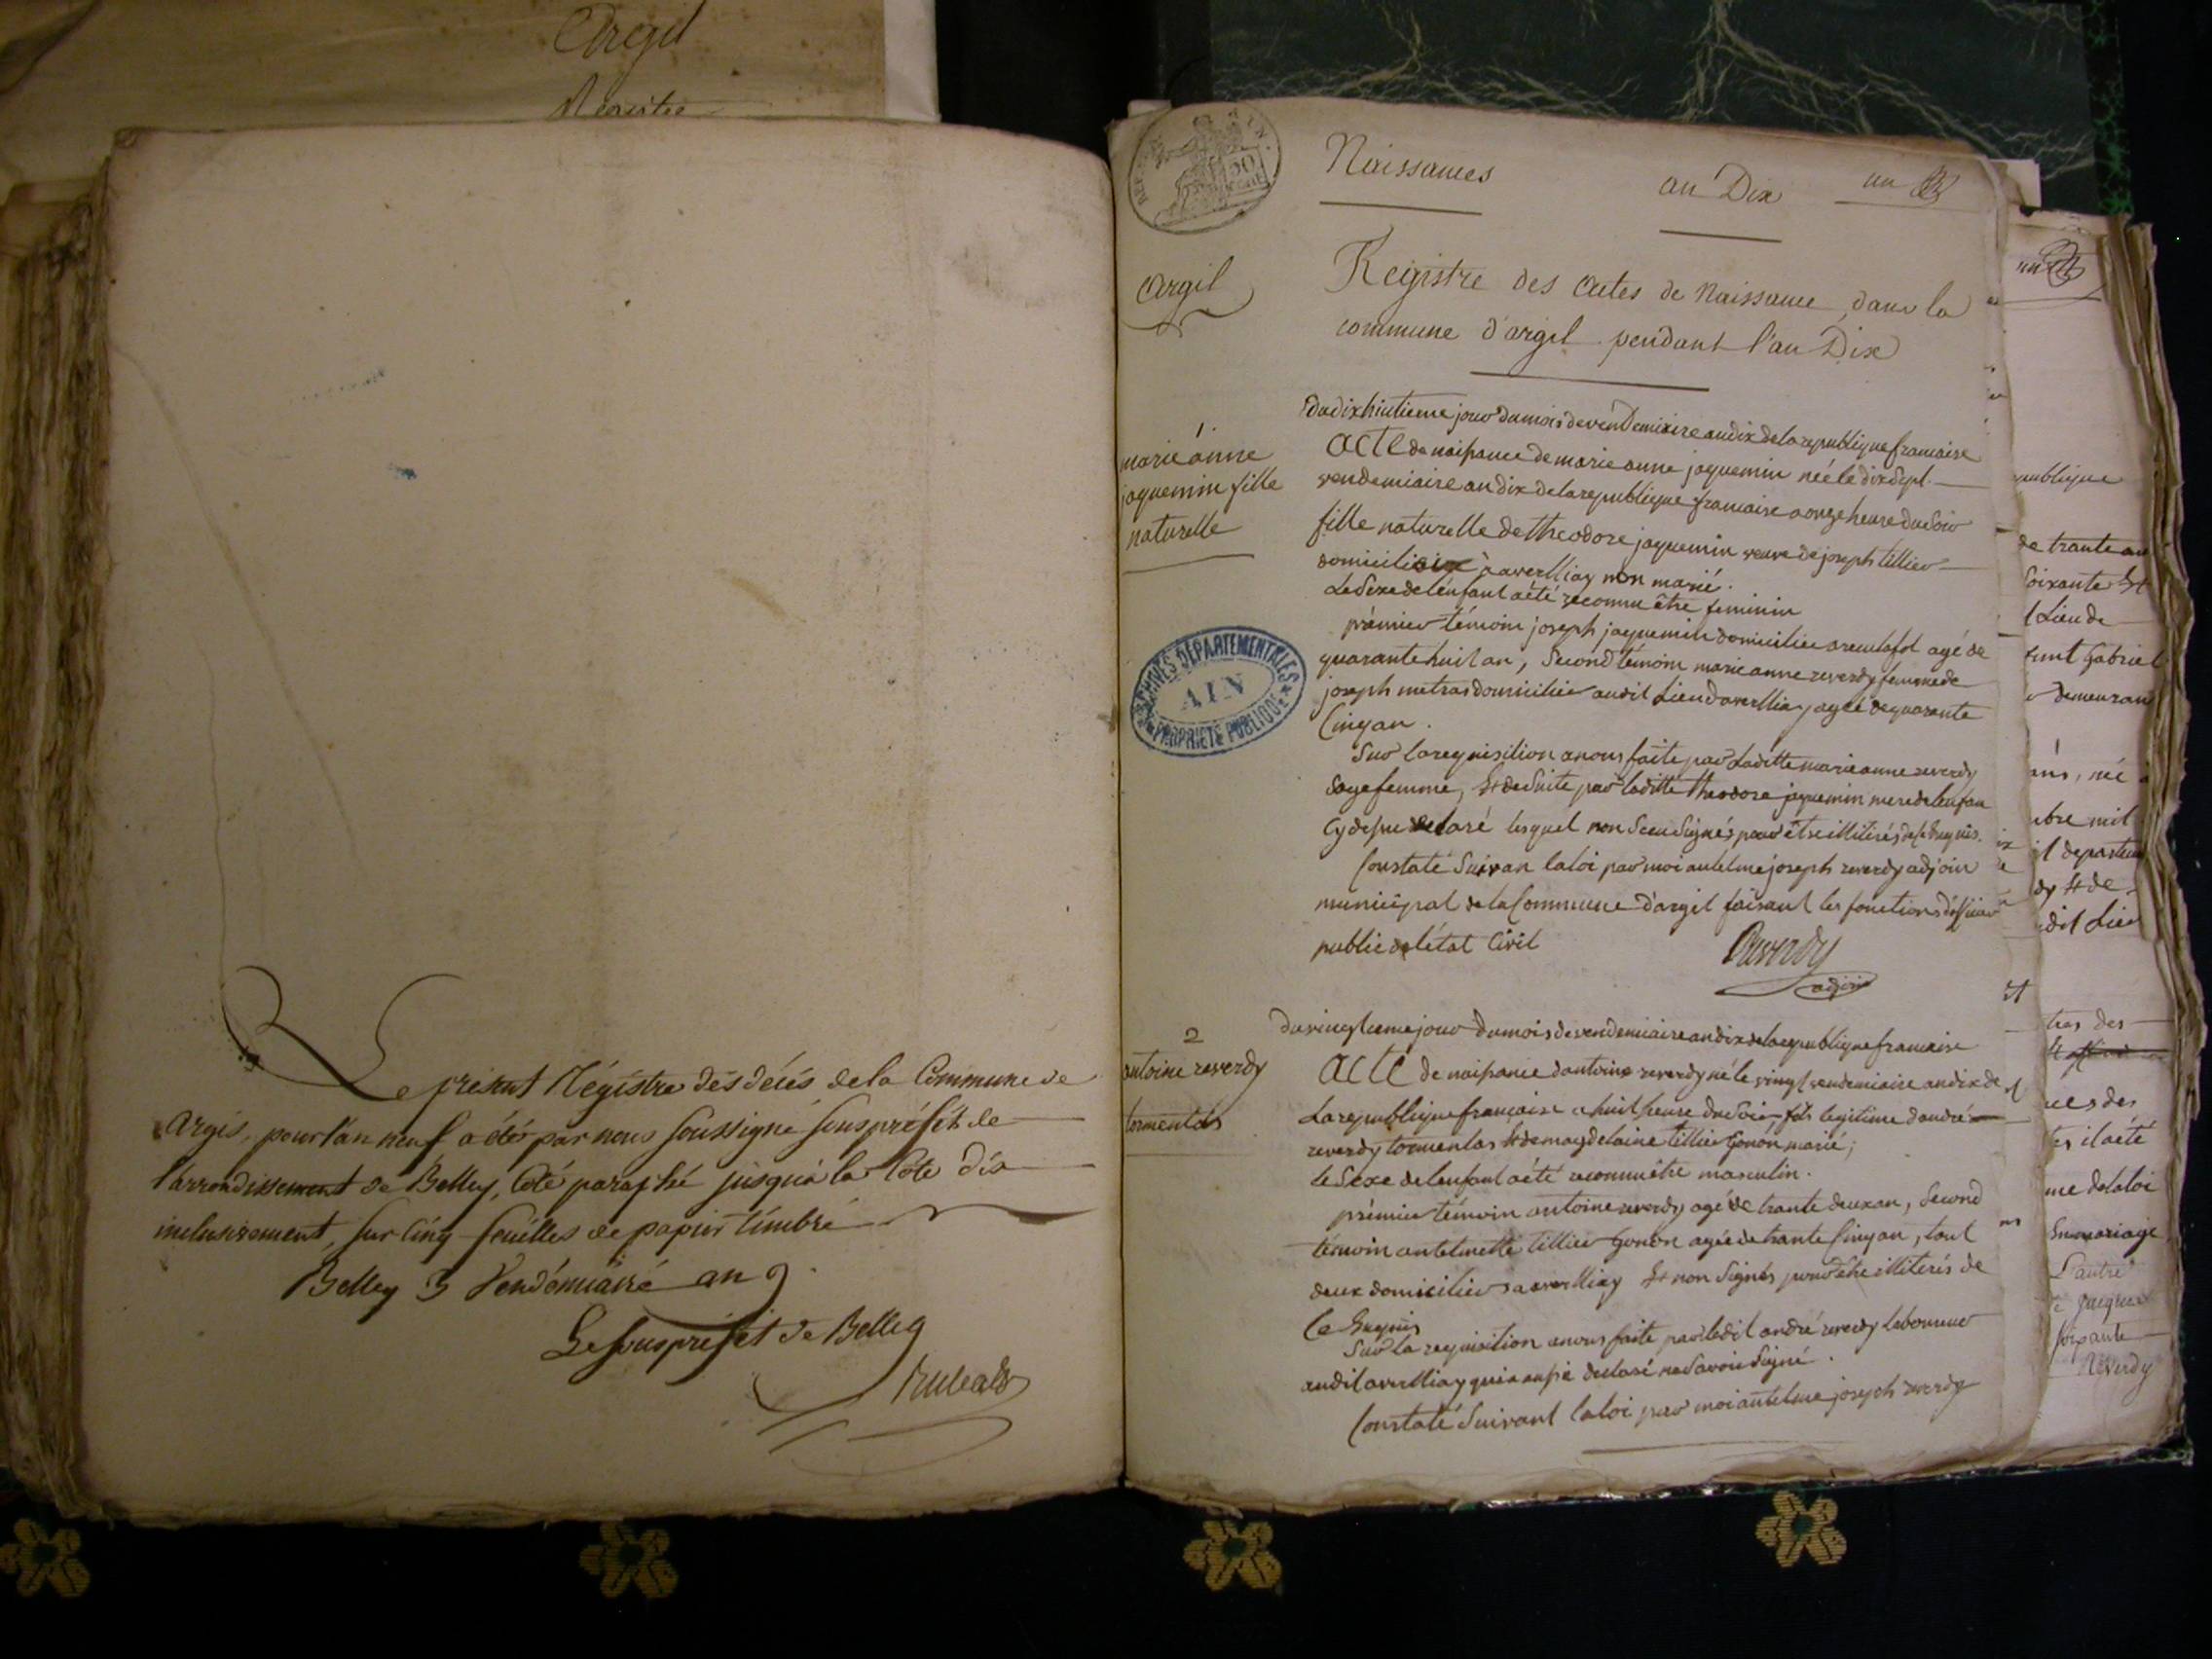 Argil
Registre
Le présent Régistre des décés de la Commune de
Argis, pour l'an neuf a été par nous soussigné sous préfet de
l'arrondissement de Belley, Coté paraphé jusqu'à la Cote dix
inclusivement, sur cinq feuilles de papier timbré
Belley 3 Vendémiaire an 9.
Le sous préfet de Belley
Naissances
an Dix
un
Argil
Registre des Actes de Naissance, dans la
commune d'argil pendant l'an Dix
1
marie anne
jaquemin fille
naturelle
du dix huitieme jour du mois de vendemiaire an dix de la republique francaise
Acte de naissance de marie anne jaquemin née le dix sept
vendemiaire an dix de la republique francaise a onze heure du soir
fille naturelle de theodore jaquemin veuve de joseph tillier
à averlliay non marié.
Le Sexe de l'enfant a été reconnu être feminin
prémier témoin joseph jaquemin domicilier agé de
quarante huit an, Second témoin marie anne reverdy femme de
joseph metras domicilier au dit Lieu d'averlliay agée de quarante
Cinq an.
Sur la requisition a nous faite par Laditte marie anne reverdy
Sage femme, Et de Suite par laditte theodore jaquemin mere de lenfan
Cy desu declaré lesquel non Sceu Signés pour être illitirés
Constaté Suivan la loi par moi antelme joseph reverdy adjoin
municipal de la Commune d'argil faisant les fonctions d'officier
public de l'état Civil
Reverdy
adjoin
ARCHIVES DEPARTEMENTALES
AIN
PROPRIETE PUBLIQUE
2
antoine reverdy
tormentas
du vingtieme jour du mois de vendemiaire an dix de la republique francaise
Acte de naissance d'antoine reverdy né le vingt vendemiaire an dix de
La republique francaise a huit heure du Soir, fils legitime d'andré
reverdy tormentas Et de magdelaine tillier Gonon marié;
le Sexe de lenfant a été reconnu être masculin.
prémier témoin antoine reverdy agé de trante deux an, Second
témoin antelmette tillier Gonon agée de trante Cinq an, tout
deux domicilier a averlliay Et non Signés pour être illiterés de
Ce Enquis
Sur la requisition a nous faite par ledit andré reverdy laboureur
audit averlliay qui a aussi declaré ne Savoir Signé.
Constaté Suivant la loi par moi antelme joseph reverdy
publique
de trante an
Soixante Et
Lieu de
Gabriel
demeuran
né
mil
Et de
dit Lieu
des
il a été
me de la loi
En mariage
L'autre
Soixante
Reverdy